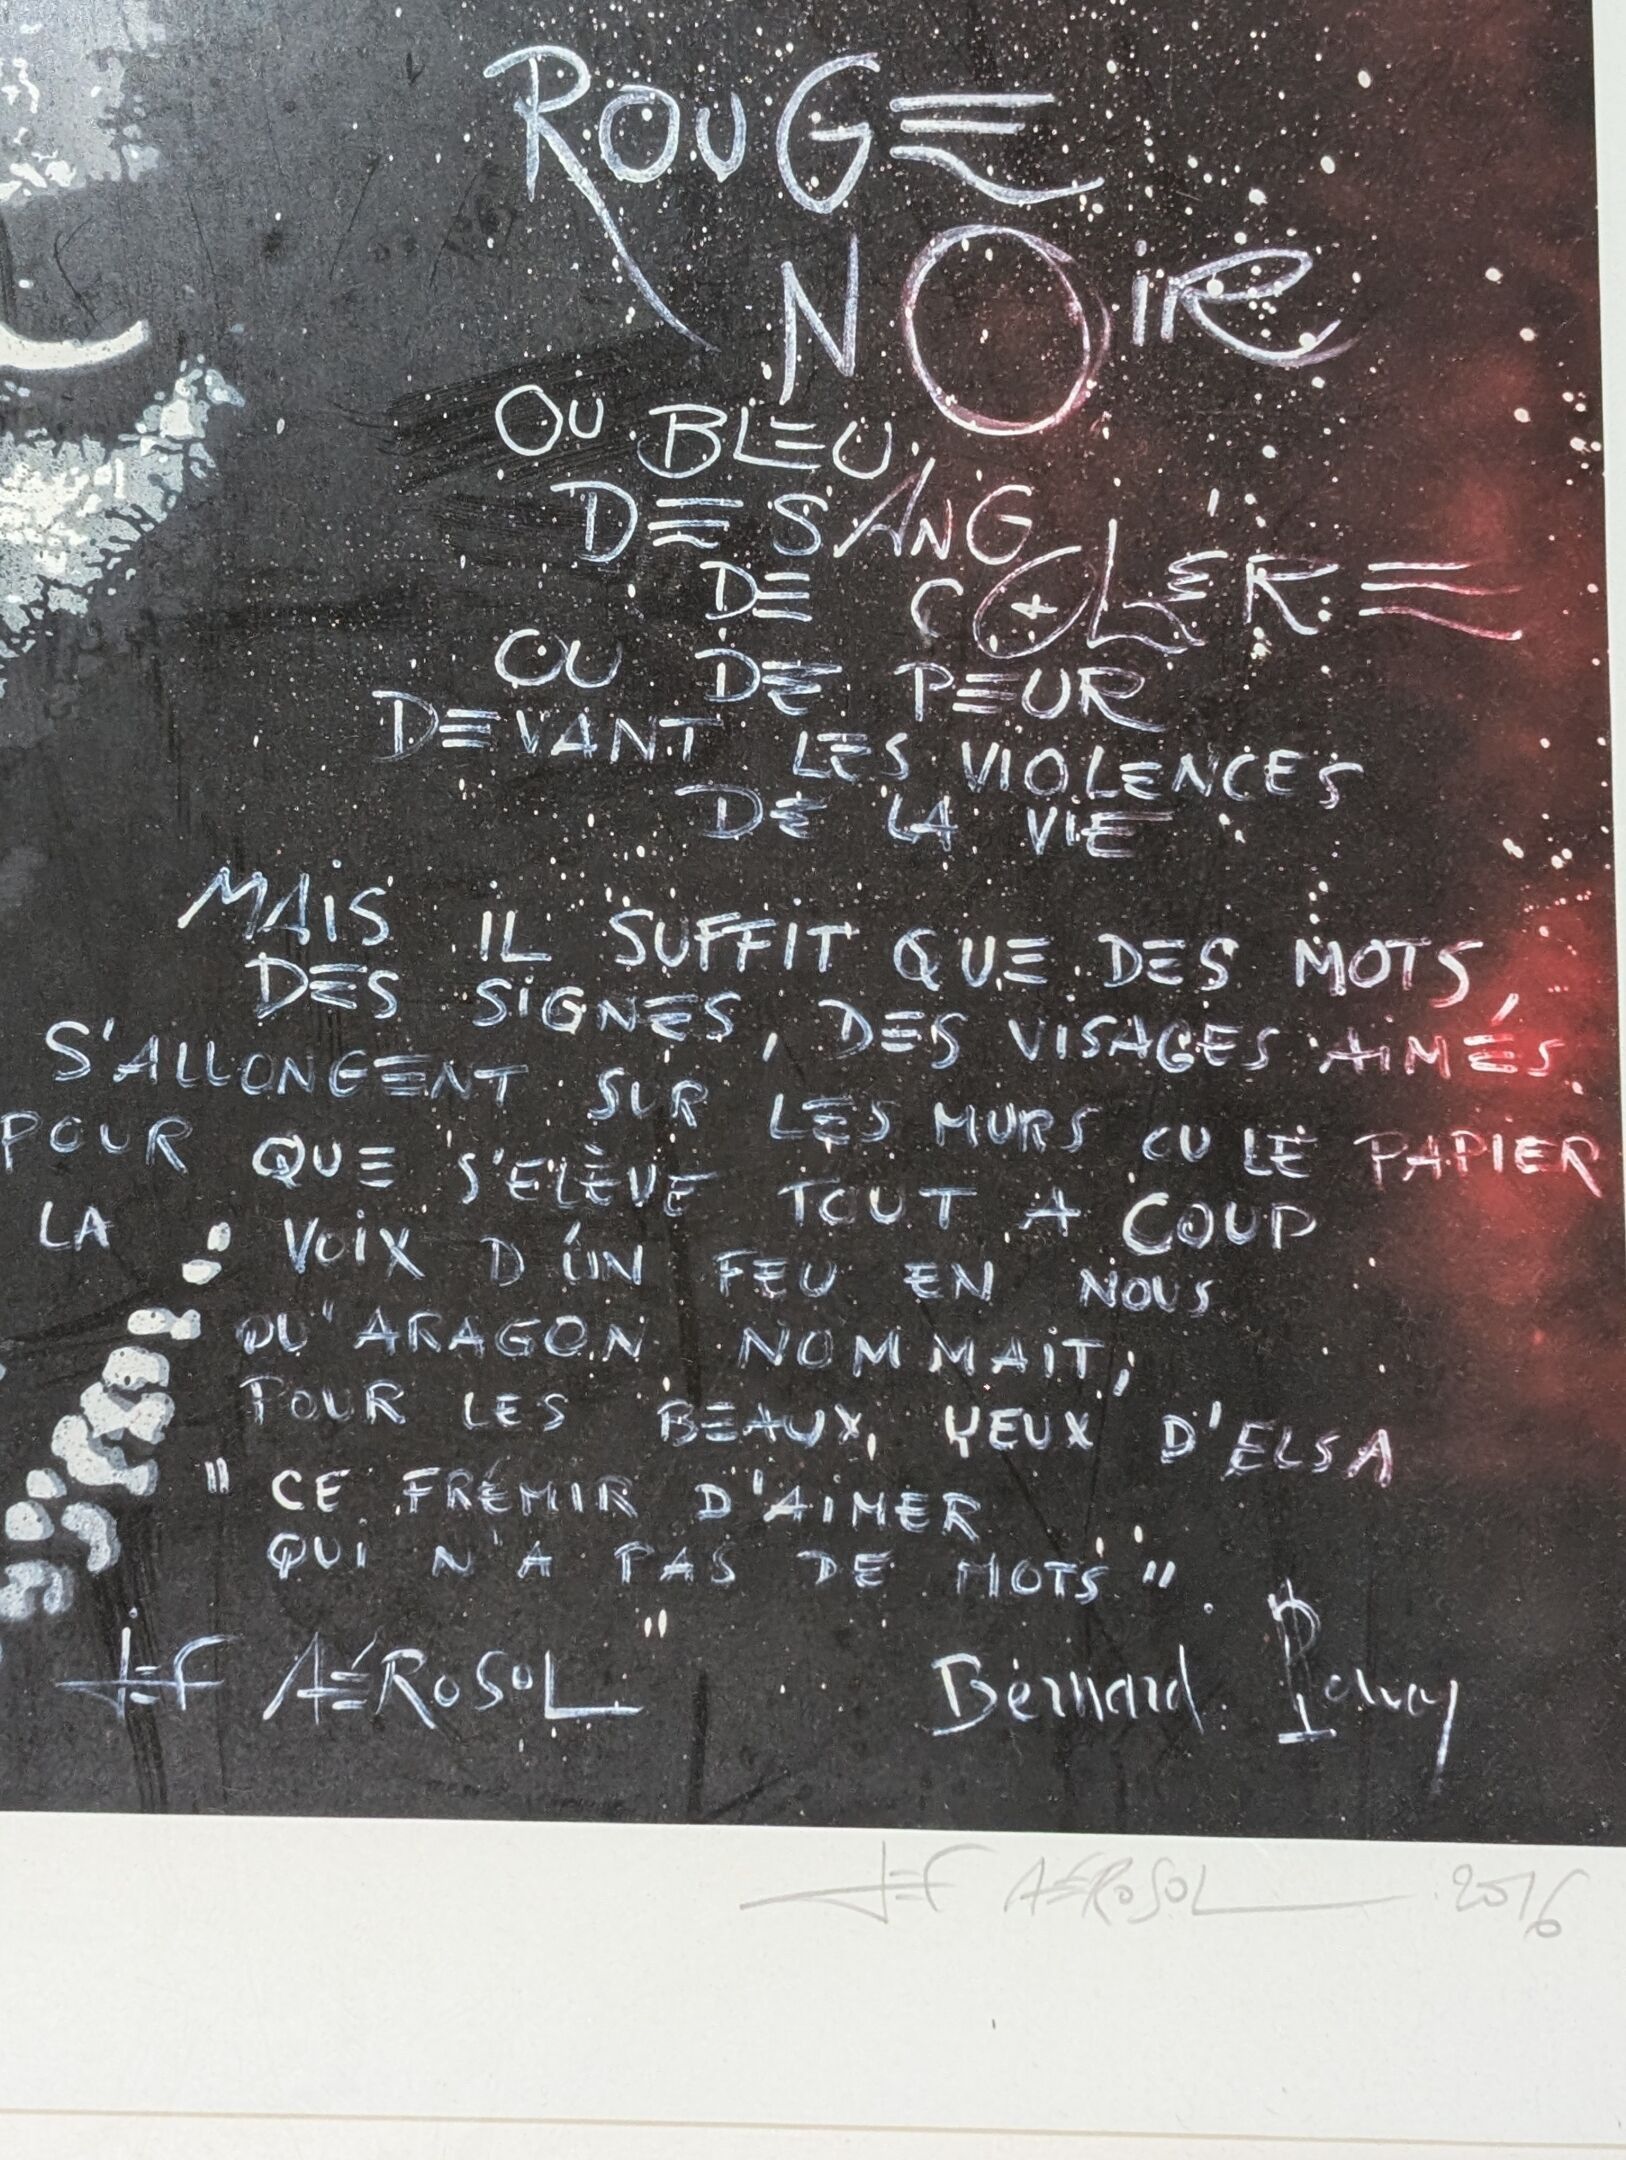 ROUGE
NOIR
OU BLEU
DE SANG
DE COLÈRE
OU DE PEUR
DEVANT LES VIOLENCES
DE LA VIE
MAIS IL SUFFIT QUE DES MOTS,
DES SIGNES, DES VISAGES AIMÉS
S'ALLONGENT SUR LES MURS OU LE PAPIER
POUR QUE S'ELÈVE TOUT A COUP
LA VOIX D'UN FEU EN NOUS
QU'ARAGON NOMMAIT,
POUR LES BEAUX YEUX D'ELSA
" CE FRÉMIR D'AIMER
QUI N'A PAS DE MOTS "
JEF AÉROSOL Bernard
JEF AÉROSOL 2016